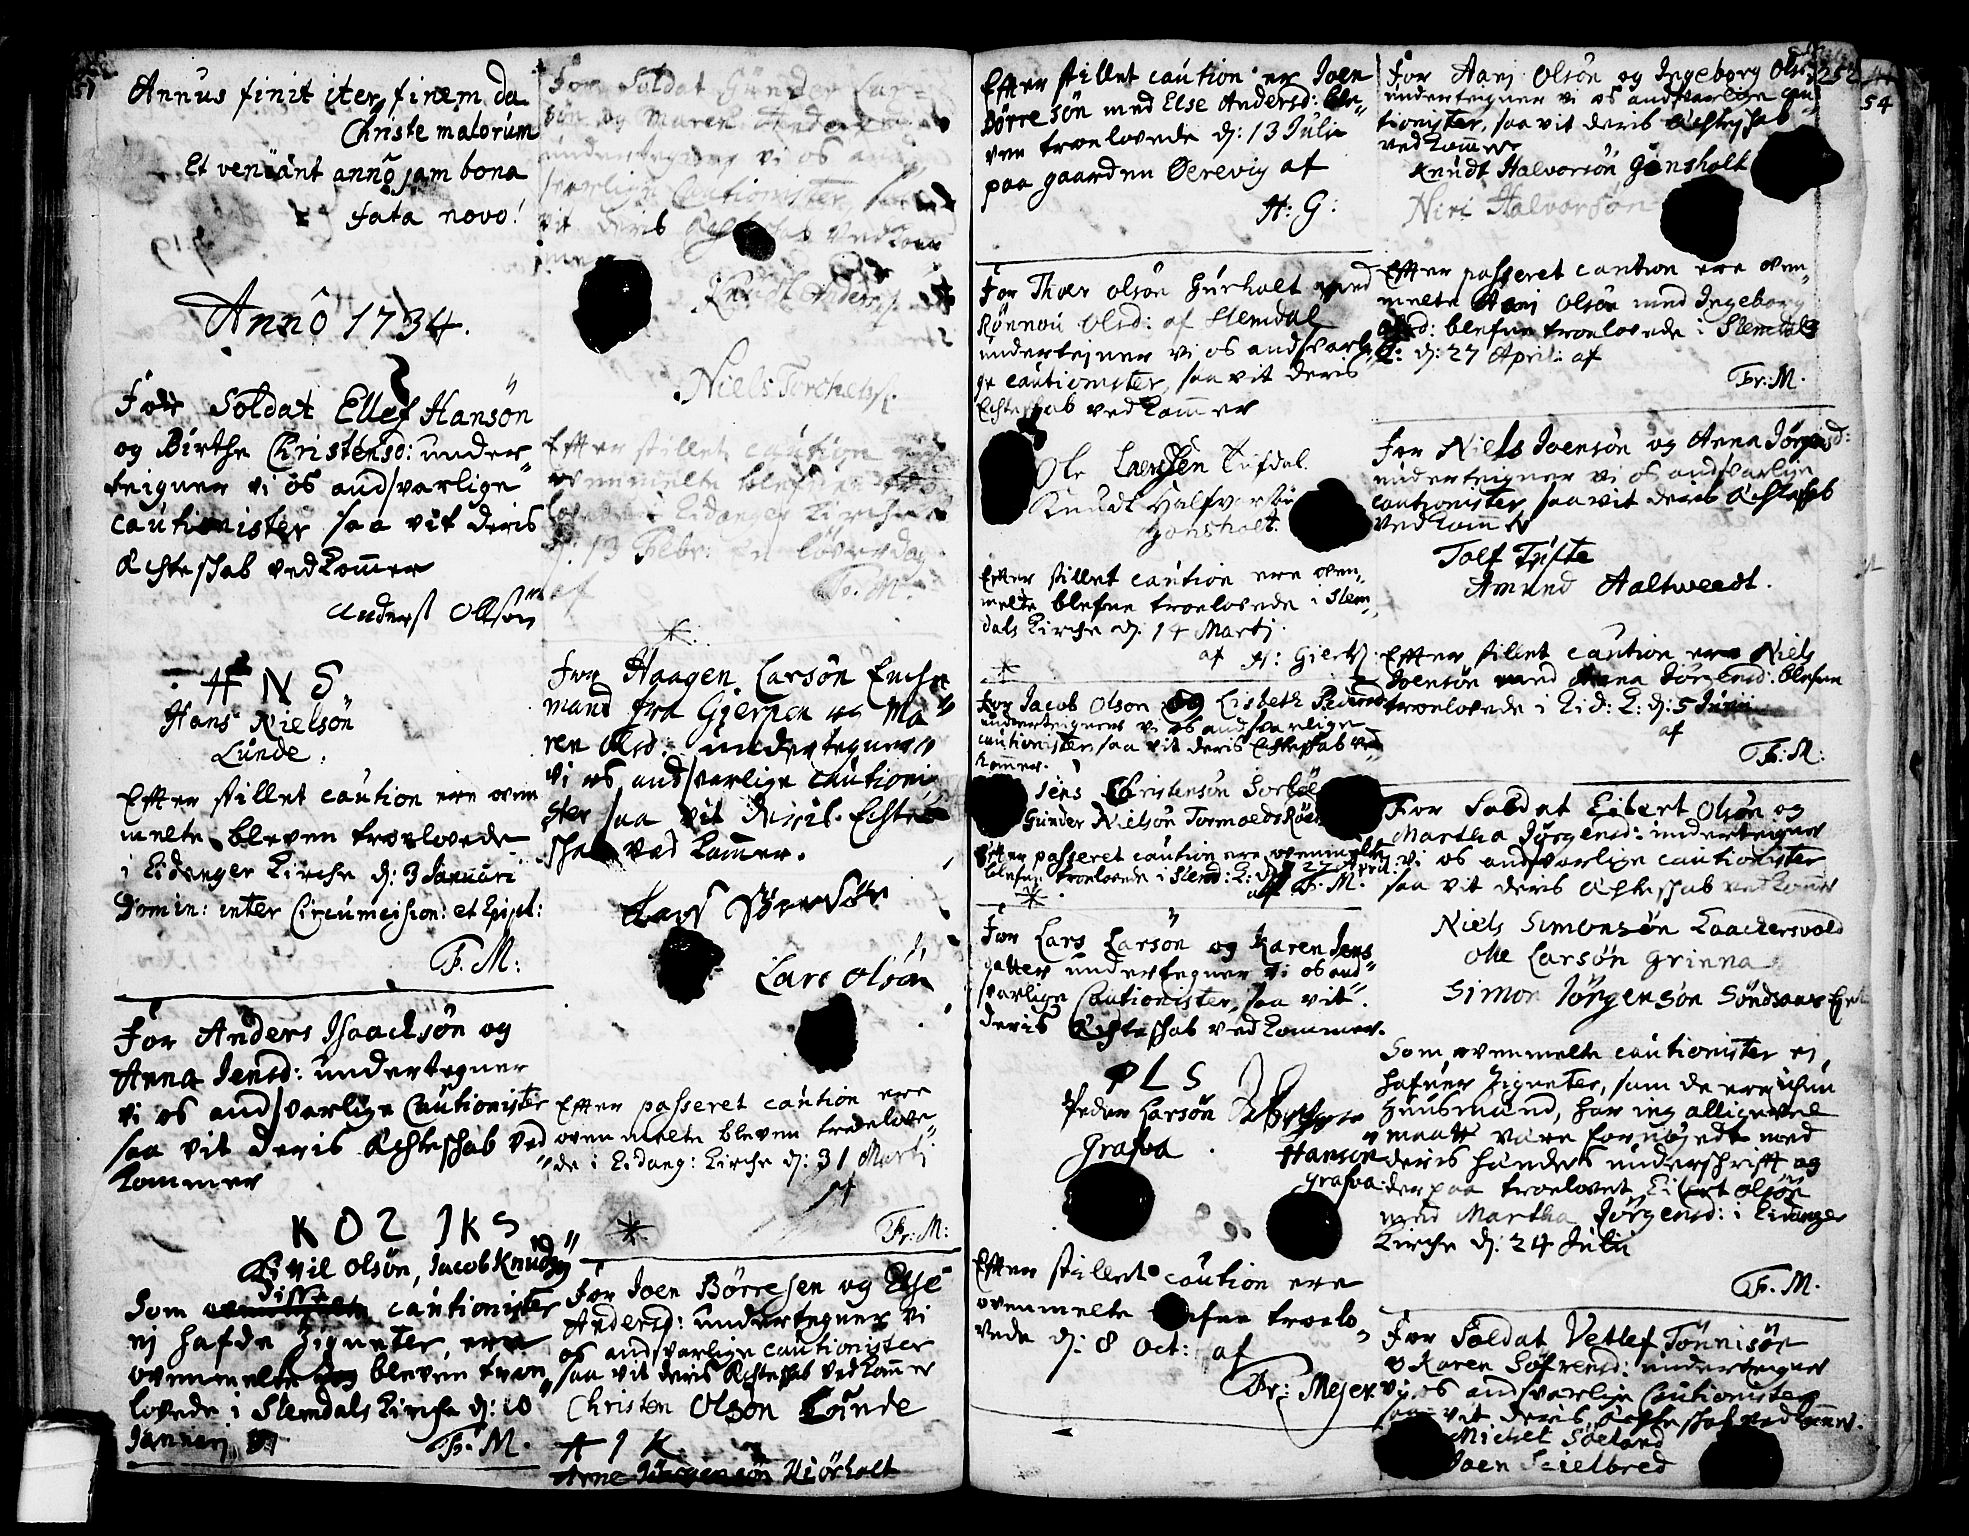 Annus finit iter, finem da
Christe malorum
Et veniant anno jam bona
fata novo!
Anno 1734.
For Soldat Ellef Hansön
og Birthe Christensd: under-
teigner vi os andsvarlige
cautionister saa vit deris
Ægteskab vedkommer
Anders Ollsön
H N S.
Hans Nielsön
Lunde.
Effter stillet caution ere oven
melte bleven troelovede
i Eidanger Kirche d: 3 Januari
Domin: inter Circumcision: et Epiph:
Fr. M:
For Anders Isaacksön og
Anna Jensd: undertegner
vi os andsvarlige Cautionister
saa vit deris Ægteskab ved
kommer
K O S I K S
Olsön, Jacob Knuds
disse
Som cautionister
ej hafde Zigneter, ere
ovenmelte bleven troe
lovede i Slemdals Kirche d: 10
Januarj
Fr. M.
For Soldat Gunder Lar-
sön og Maren Andersd
undertegner vi os and
svarlige Cautionister, saa
vit deris Ægteskab vedkom
mer
Knudt Anders
Niels Torchels
Effter stillet caution ere
ovenmelte blefne troe
lovede i Eidanger Kirche
d: 13 Febr: löverdag
af
Fr. M.
For Haagen Larsön Enche
mand fra Gjerpen og Ma
ren Olsd: undertegner
vi os andsvarlige cautioni
ster saa vit deris Echte
skab vedkommer.
Lars
Lars Olsön
Effter passeret caution ere
ovenmelte bleven troelove-
de i Eidang: Kirche d: 31 Martj
af
Fr: M:
For Joen Börresen og Else
Andersd: undertegner vi
os andsvarlige cautionister
saa vit deris Ægteskab vedkommer
Christen Olsön Lunde
A I K
Arne Jörgensön Hiörholt
Effter stillet caution er Joen
Börresön med Else Andersd: ble-
ven troelovede d: 13 Julii
paa gaarden Oerevig af
H: G:
For Thoer Olsön Hurholt med
Rönnou Olsd: af Slemdal
underteigner vi os andsvarli
ge cautionister, saa vit deris
Echteskab vedkommer
Ole Laersen
Knudt Halfvorsön
Gonsholt.
Effter stillet caution ere oven-
melte blefne troelovede i Slem-
dals Kirche d. 14 Martj.
af H: Giertz
For Jacob Olson og Lisbeth Pedersd
underteigner vi os andsvarlige
cautionister, saa vit deris Echteskab ved
kommer.
Jens Christensön
Gunder Nielsön
Effter passeret caution ere ovenmelte
blefne troelovede i Slemd: K: d: 27 April:
af Fr. M.
For Lars Larsön og Karen Jens
datter undertegner vi os and-
svarlige Cautionister, saa vit
deris Ægteskab vedkommer.
P L S
Peder Larsön
Grafva
Hanson
Grafva
Effter stillet caution ere
ovenmelte blefne troelo-
vede d: 8 Oct: af
Fr: Mejer
252
54
For Hans Olsön og Ingeborg Olsd
underteigner vi os andsvarlige cau
tionister, saa vit deris Ægteskab
vedkommer
Knudt Halvorsön Gonsholt
Niri Halvorsön
Effter passeret caution ere oven-
melte Hans Olsön med Ingeborg
Olsd: blefne troelovede i Slemdals
K: d: 27 April: af
Fr: M.
For Niels Joensön og Anna Jörgensd:
underteigner vi os andsvarlige
cautionister, saa vit deris Ægteskab
vedkommer
Tolf Tufte
Amund Aaltweedt.
Effter stillet caution ere Niels
Joensön med Anna Jörgensd: blefne
troelovede i Eid: K: d: 5 Junii
af
Fr: M:
For Soldat Eibert Olsön og
Martha Jörgensd: undertegner
vi os andsvarlige cautionister
saa vit deris Ægteskab vedkommer
Niels Simonsön
Ole Larsön Grinna
Simon Jörgensön
Som ovenmelte cautionister ej
hafver Zigneter, som de ere
Huusmænd, har ieg alligevel
maatt være fornöjedt med
deris hænders underschrifft og
derpaa troelovet Eibert Olsön
med Martha Jörgensd: i Eidanger
Kirche d: 24 Julii
Fr. M.
For Soldat Vetlef Tönnisön
og Karen Söfrensd: underteigner
vi os andsvarlige Cautionister
saa vit deris Ægteskab vedkommer.
Michel
Joen